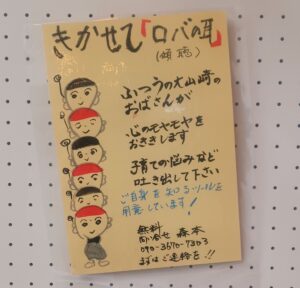 きかせて「ロバの耳」
(傾聴)
ふつうの大山崎の
おばさんが
心のモヤモヤを
おききします
子育ての悩みなど
吐き出して下さい
ご自身を知るツールも
用意しています!
無料
問合せ 森本
090-3670-7303
まずはご連絡を!!